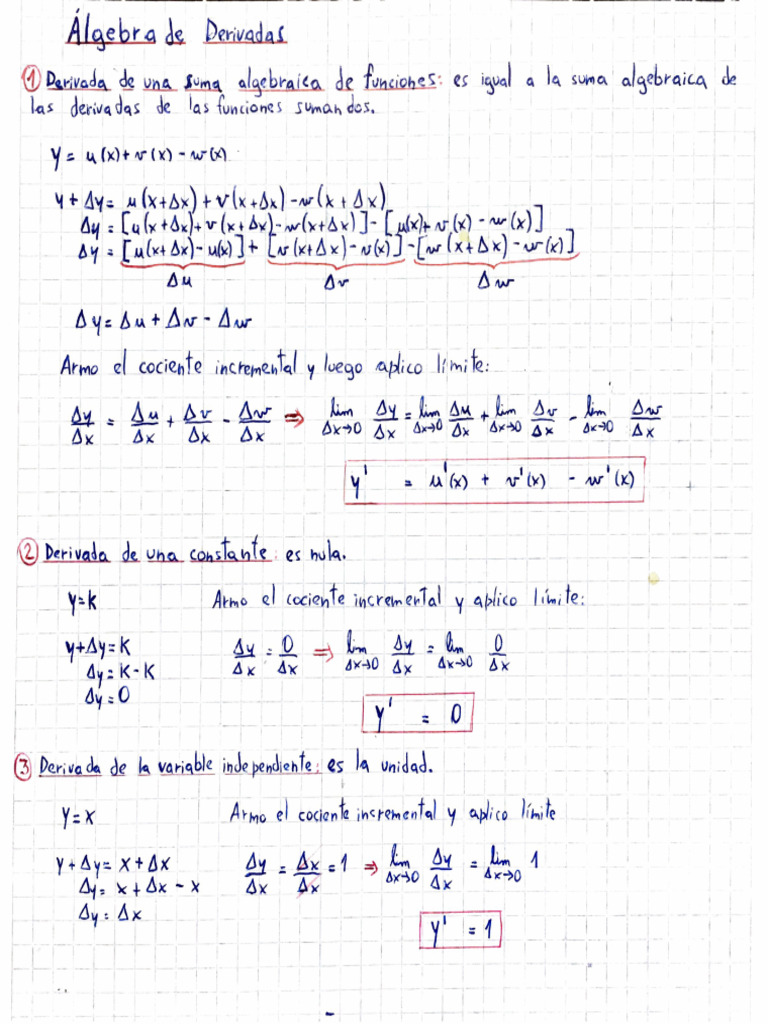 Álgebra de Derivadas
① Derivada de una suma algebraica de funciones: es igual a la suma algebraica de
las derivadas de las funciones sumandos.
y = u(x) + v(x) - w(x)
y + Δy = u(x+Δx) + v(x+Δx) - w(x+Δx)
Δy = [u(x+Δx) + v(x+Δx) - w(x+Δx)] - [u(x) + v(x) - w(x)]
Δy = [u(x+Δx) - u(x)] + [v(x+Δx) - v(x)] - [w(x+Δx) - w(x)]
Δu Δv Δw
Δy = Δu + Δv - Δw
Armo el cociente incremental y luego aplico límite:
Δy/Δx = Δu/Δx + Δv/Δx - Δw/Δx ⇒ lim Δx→0 Δy/Δx = lim Δx→0 Δu/Δx + lim Δx→0 Δv/Δx - lim Δx→0 Δw/Δx
y' = u'(x) + v'(x) - w'(x)
② Derivada de una constante: es nula.
y=K Armo el cociente incremental y aplico límite:
y+Δy=K Δy/Δx = 0/Δx ⇒ lim Δx→0 Δy/Δx = lim Δx→0 0/Δx
Δy=K-K
Δy=0
y' = 0
③ Derivada de la variable independiente: es la unidad.
y=x Armo el cociente incremental y aplico límite
y+Δy= x+Δx Δy/Δx = Δx/Δx = 1 ⇒ lim Δx→0 Δy/Δx = lim Δx→0 1
Δy= x+Δx-x
Δy=Δx
y' = 1